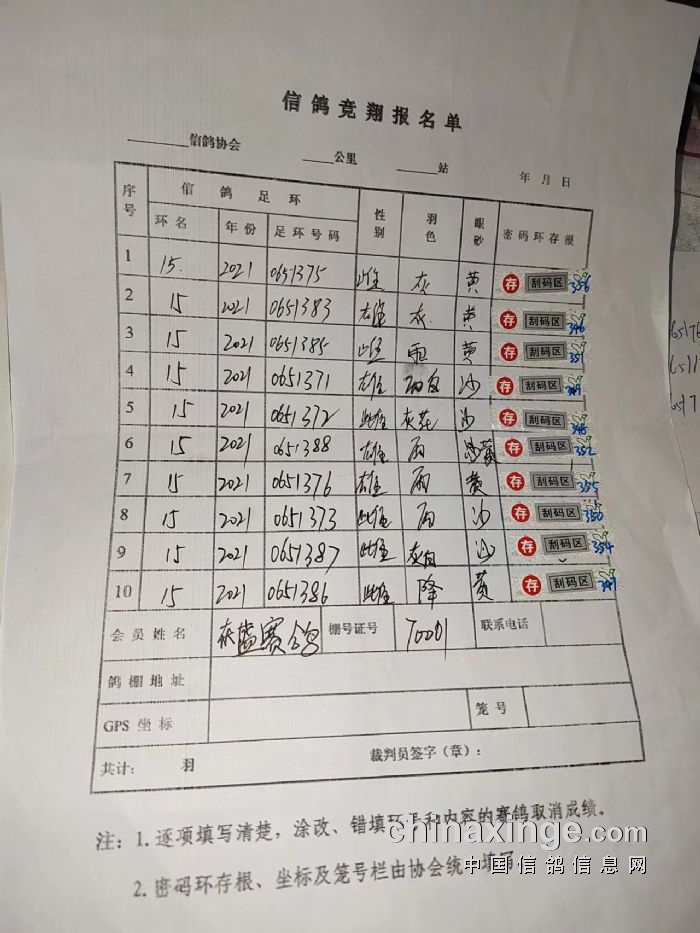 信鸽竞翔报名单
信鸽协会 公里 站 年 月 日
序号 信鸽足环 性别 羽色 眼砂 密码环存根
环名 年份 足环号码
1 15. 2021 0651375 雌 灰 黄 存 刮码区 356
2 15 2021 0651383 雄 灰 黄 存 刮码区 346
3 15 2021 0651385 雌 雨 黄 存 刮码区 351
4 15 2021 0651371 雄 雨白 沙 存 刮码区 349
5 15 2021 0651372 雌 灰花 沙 存 刮码区 348
6 15 2021 0651388 雄 雨 黄 存 刮码区 352
7 15 2021 0651376 雄 雨 黄 存 刮码区 355
8 15 2021 0651373 雌 雨 沙 存 刮码区 350
9 15 2021 0651387 雌 灰白 沙 存 刮码区 354
10 15 2021 0651386 雌 降 黄 存 刮码区 347
会员姓名 赛鸽 棚号证号 70001 联系电话
鸽棚地址
GPS 坐标 笼号
共计: 羽 裁判员签字(章):
注: 1. 逐项填写清楚,涂改、错填环号和内容的赛鸽取消成绩。
2. 密码环存根、坐标及笼号栏由协会统一填写
chinaxinge.com
中国信鸽信息网